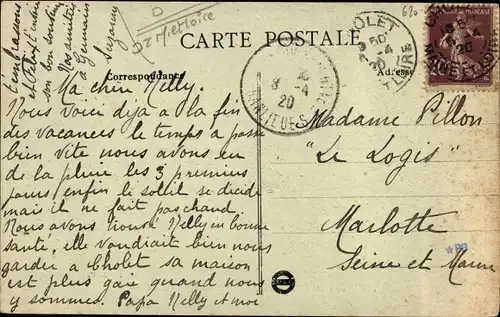 CARTE POSTALE
Correspondance
Adresse
D
Ma chère Nelly.
Nous voici déja a la fin
des vacances le temps a passé
bien vite nous avons eu
de la pluie les 3 premiers
jours enfin le soleil se décide
mais il ne fait pas chaud
Nous avons trouvé Nelly en bonne
santé, elle voudrait bien nous
garder a Cholet sa maison
est plus gaie quand nous
y sommes. Papa Nelly et moi
t'embrassons
son bon souvenir
Nos amitiés
à Germain
Suzanne
Madame Pillon
"Le Logis"
Marlotte
Seine et Marne
CHOLET
20
MAINE ET LOIRE
8 -4
20